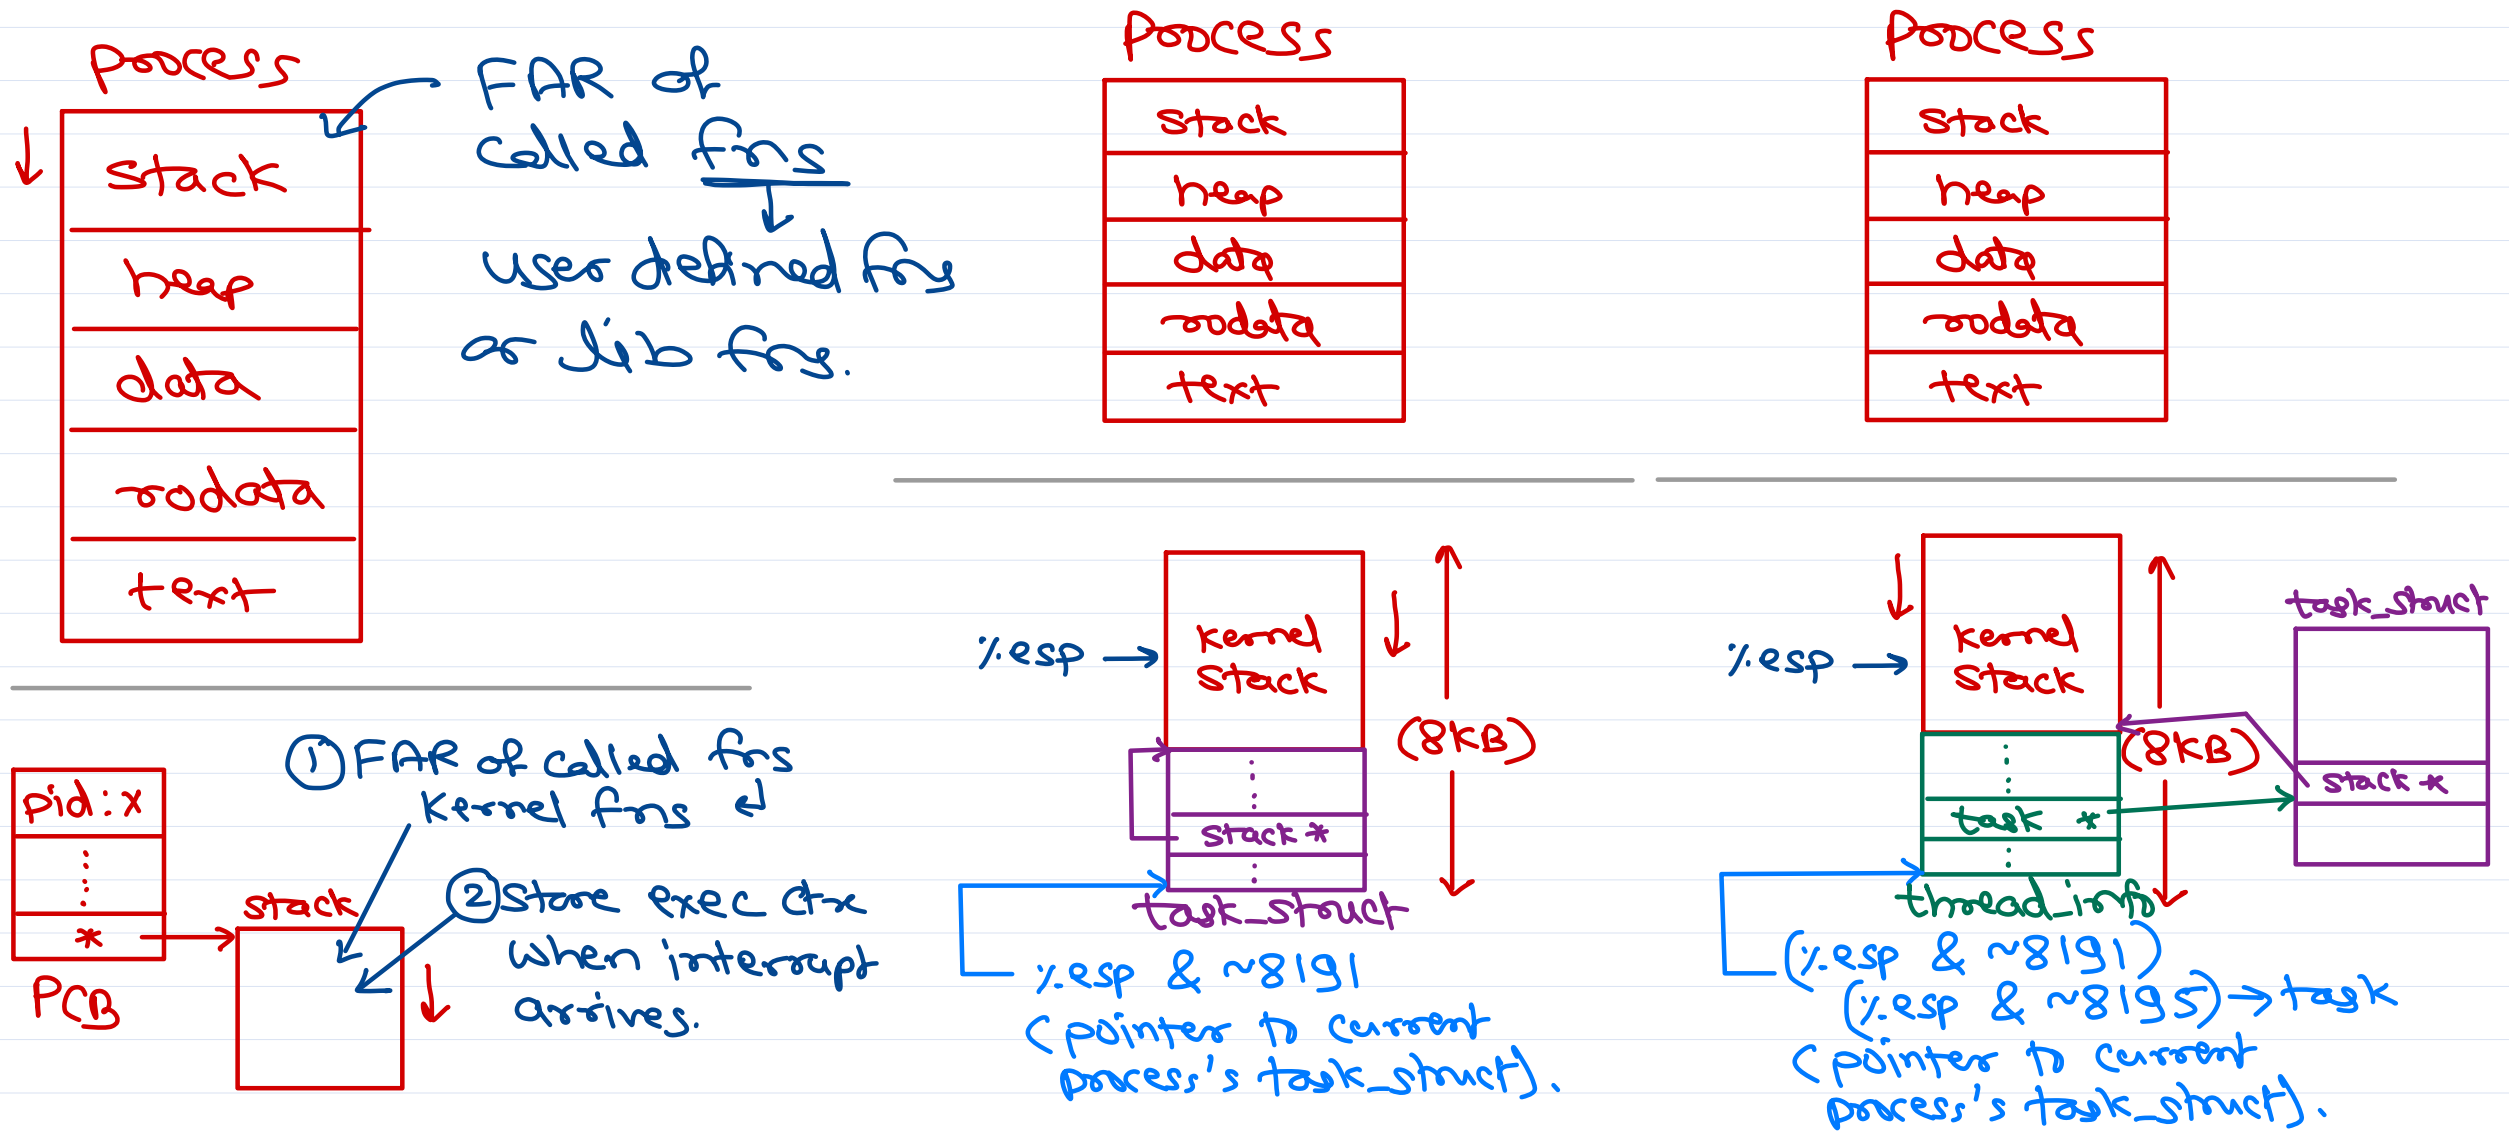 Process
stack
heap
data
rodata
text
FAR of
called fns
user defined fns
or lib fns.
pid : X
*
PCB
stack
① FAR of called fns
kernel fns
② Store exe ctx
when interrupt
arrives.
Process
stack
heap
data
rodata
text
%esp
kernel
stack
(8KB)
stack *
task_struct
%esp & ~8191
(pointer to current
process's task_struct).
Process
stack
heap
data
rodata
text
%esp
kernel
stack
(8KB)
task *
thread_info
task_struct
stack *
(%esp & ~8191)
(%esp & ~8195) -> task
(pointer to current
process's task_struct).